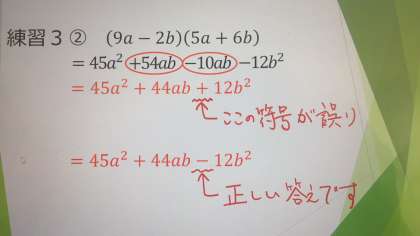 練習３ ② (9a − 2b)(5a + 6b)
= 45a² +54ab −10ab −12b²
= 45a² + 44ab + 12b²
ここの符号が誤り
= 45a² + 44ab − 12b²
正しい答えです